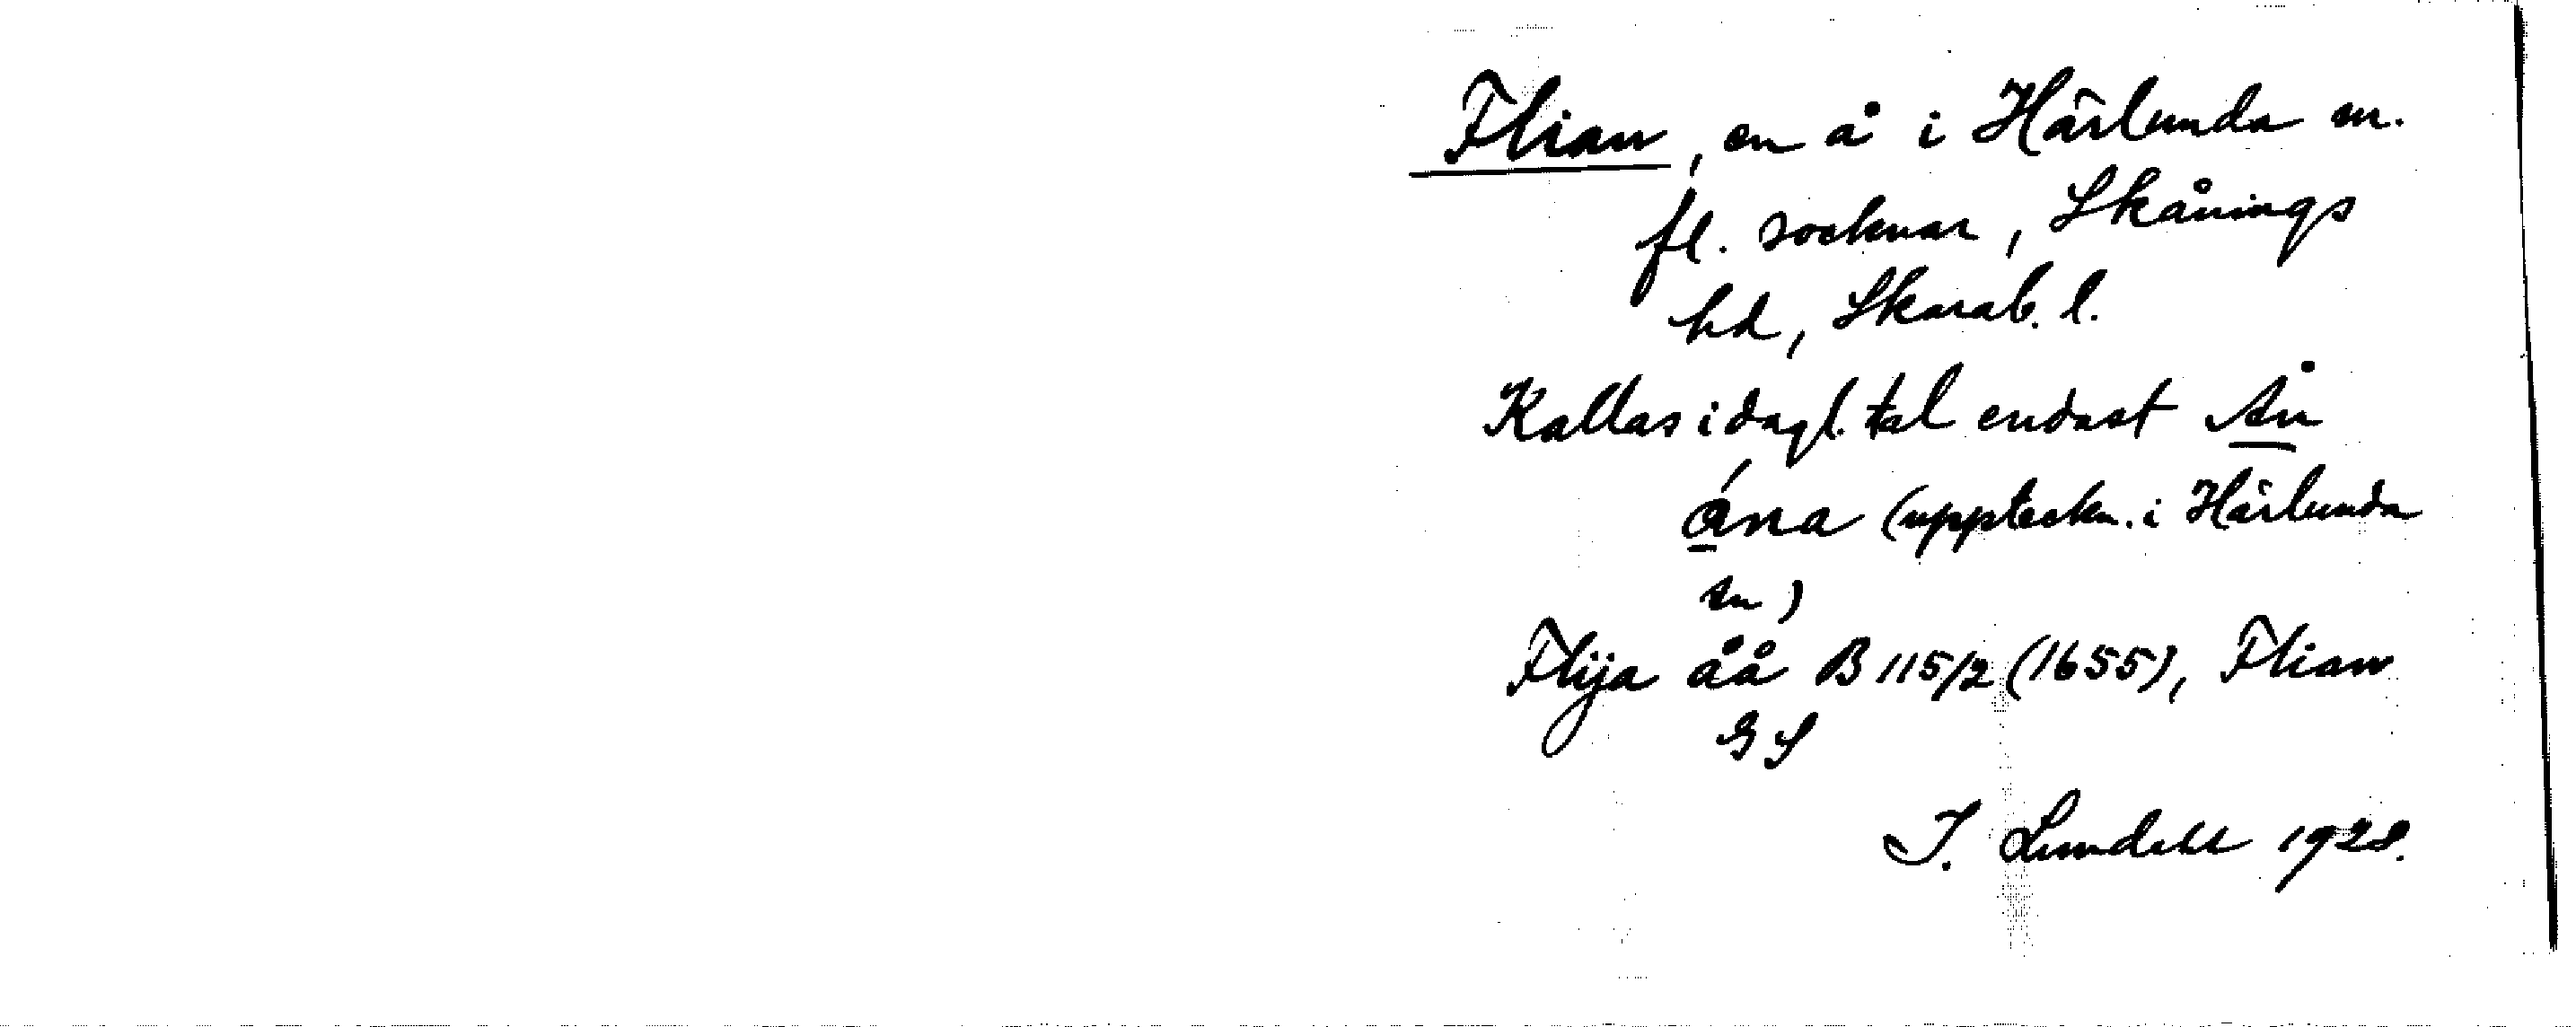 Flian, en å i Härlunda m.
fl. socknar, Skånings
hd, Skarab. l.
Kallas i dagl. tal endast Ån
ána (uppteckn. i Härlunda
sn)
Flija åå B 115/2 (1655), Flian
GS
J. Lundahl 1928.